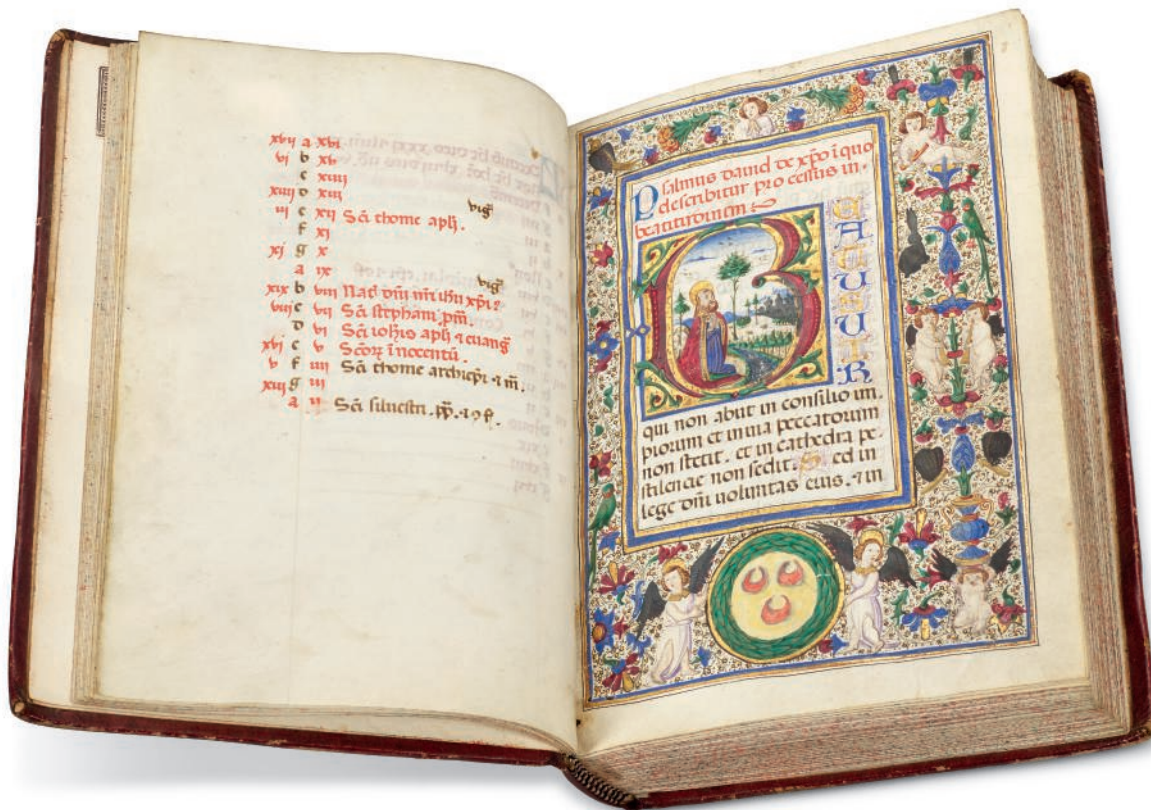 xvij a xvi
vi b xv
c xiiii
xiiii d xiii
vig̃
iii e xii Sc̃i thome apl̃i.
f xi
xi g x
a ix
vig̃
xix b viii Nat̃ dñi nr̃i ihũ xp̃i
viii c vii Sc̃i stephani pm̃.
d vi Sc̃i ioh̃is apl̃i ⁊ euang̃
xvi e v Sc̃oꝝ ĩnocentũ.
v f iiii Sc̃i thome archiep̃i ⁊ m̃.
xiii g iii
a ii Sc̃i siluestri. pp̃. ⁊ 9f̃.
Psalmus dauid de xp̃o ĩ quo
describitur processus in
beatitudinem
B
EATUS UIR
qui non abiit in consilio im
piorum et in uia peccatorum
non stetit. et in cathedra pe
stilencie non sedit. Sed in
lege dñi uoluntas eius. ⁊ in